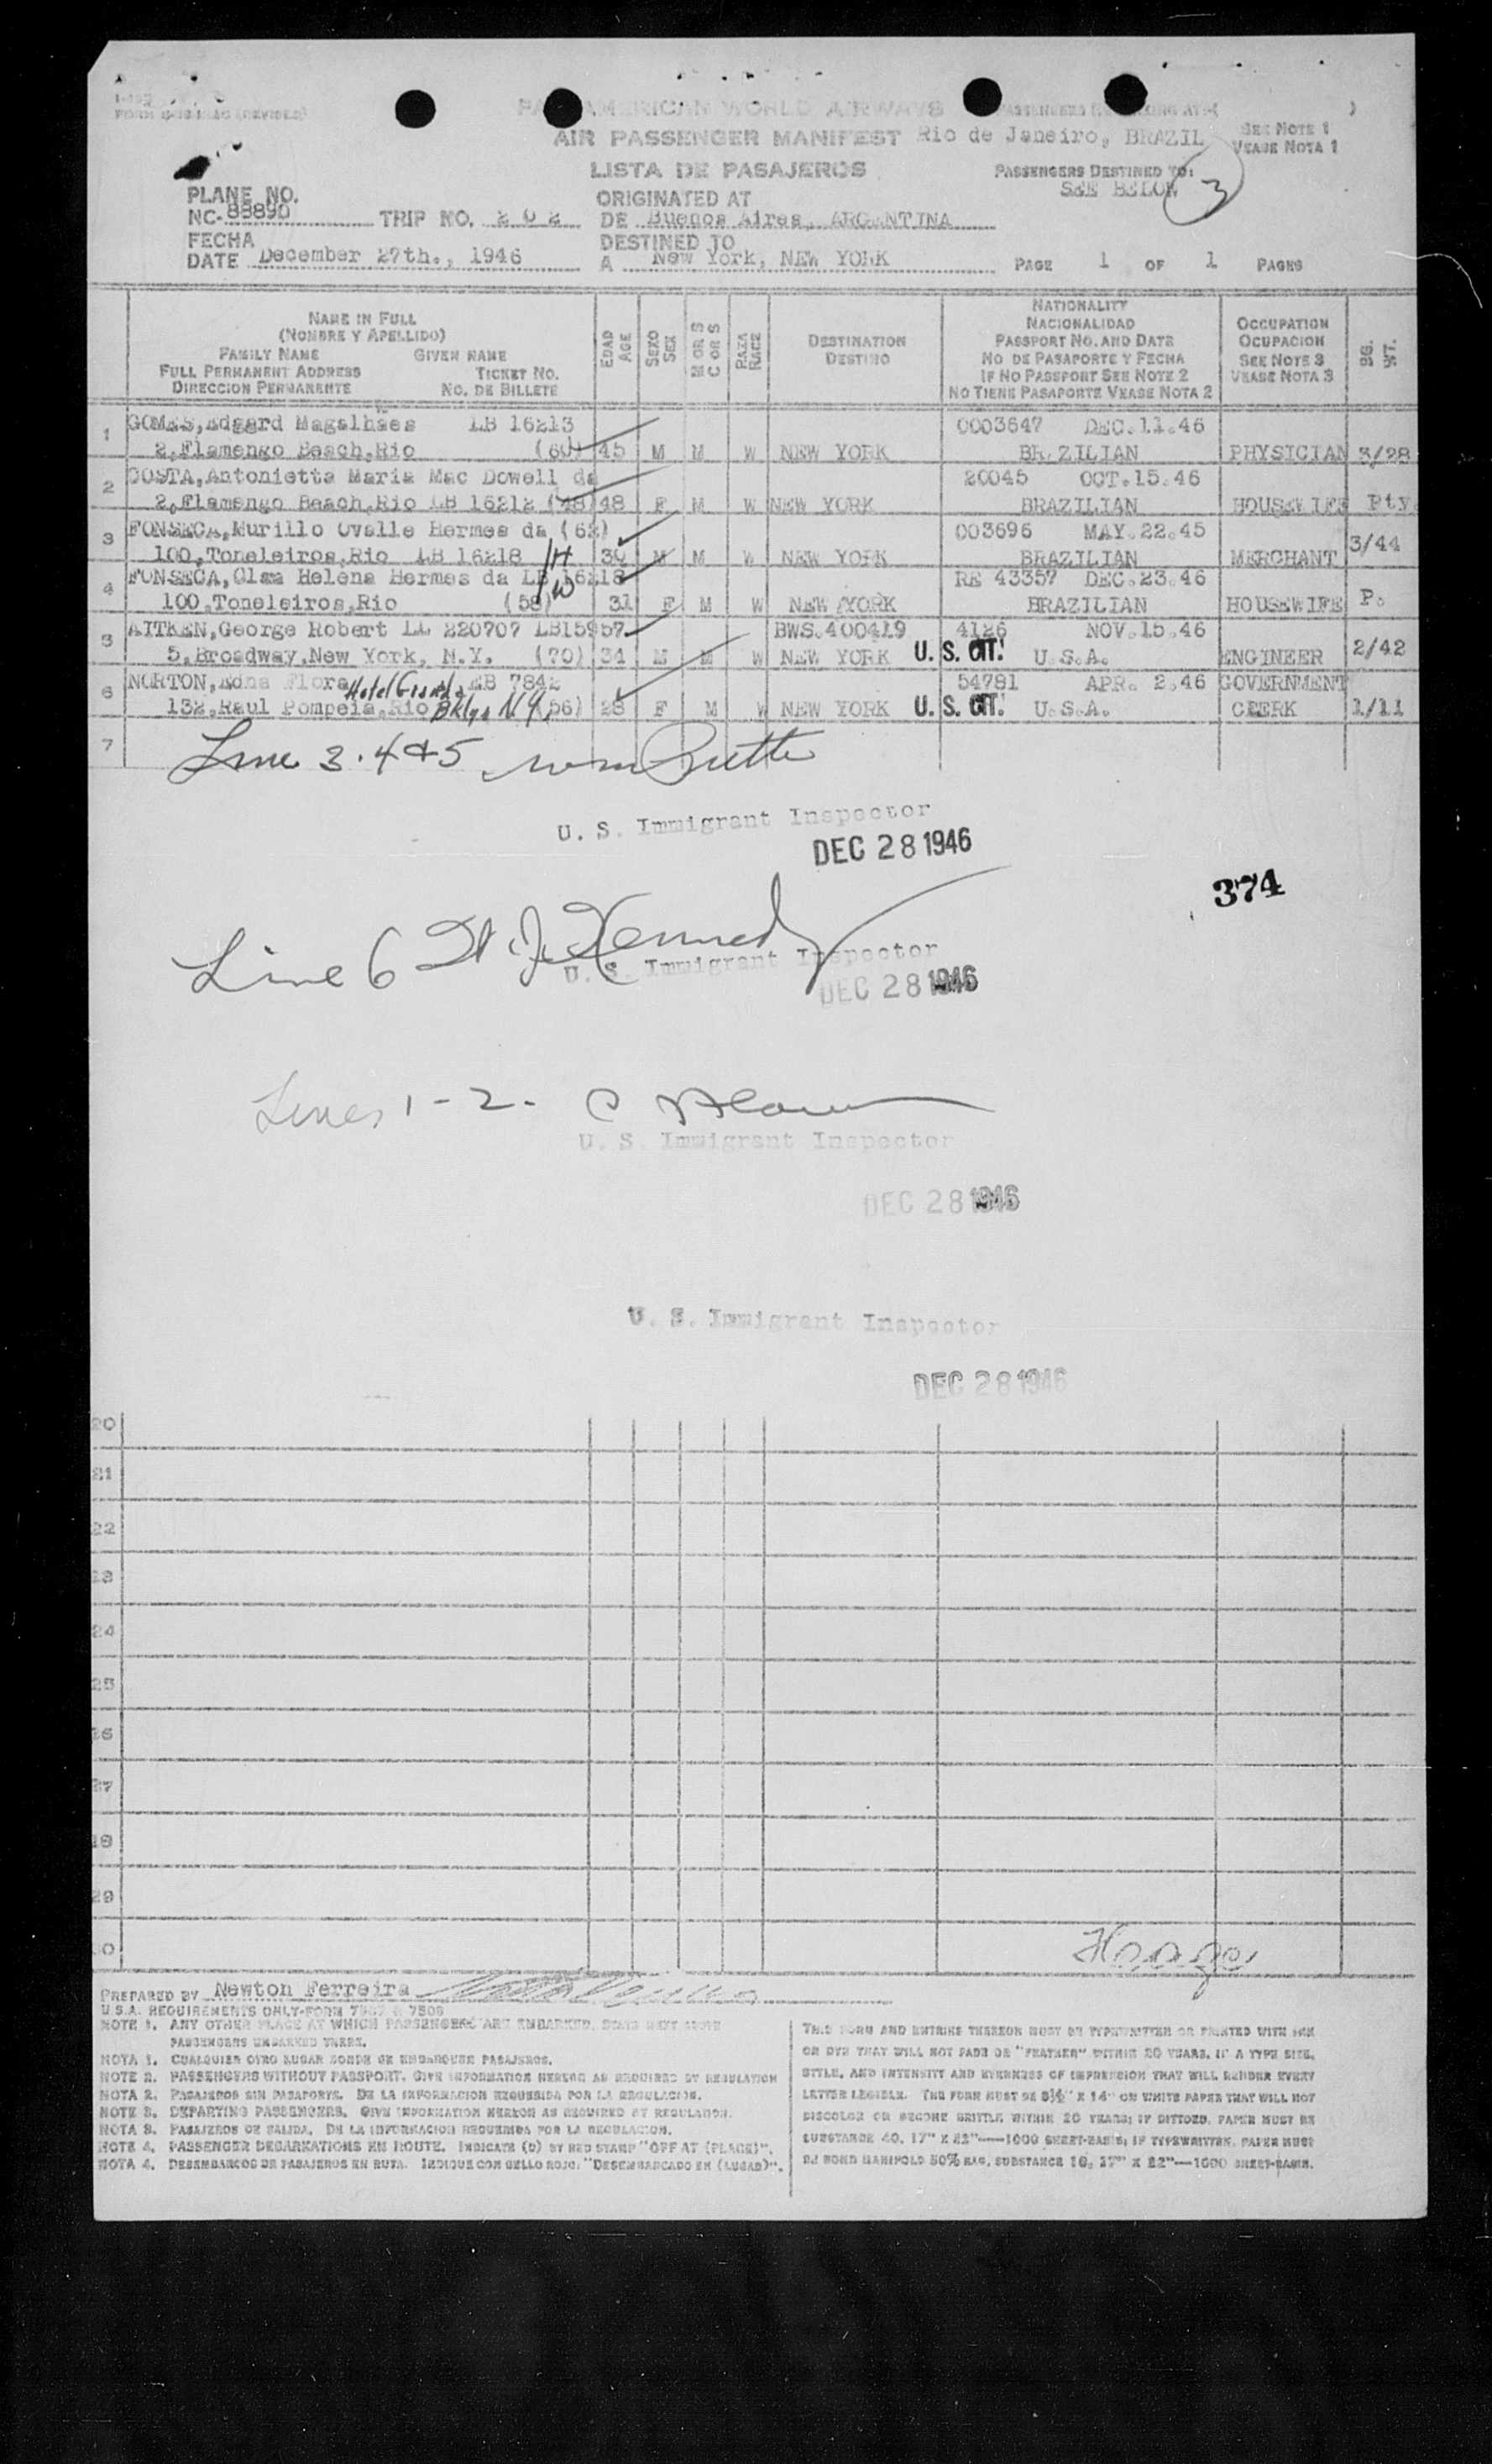 PAN AMERICAN WORLD AIRWAYS
AIR PASSENGER MANIFEST Rio de Janeiro, BRAZIL
SEE NOTE 1
VEASE NOTA 1
LISTA DE PASAJEROS
PASSENGERS DESTINED TO:
SEE BELOW 3
PLANE NO.
NC- TRIP NO. 202
ORIGINATED AT
DE Buenos Aires, ARGENTINA
FECHA
DATE December 27th., 1946
DESTINED TO
A New York, NEW YORK
PAGE 1 OF 1 PAGES
NAME IN FULL
(NOMBRE Y APELLIDO)
FAMILY NAME GIVEN NAME
FULL PERMANENT ADDRESS TICKET NO.
DIRECCION PERMANENTE NO. DE BILLETE
EDAD AGE
SEXO SEX
M OR S C OR S
RAZA RACE
DESTINATION
DESTINO
NATIONALITY
NACIONALIDAD
PASSPORT NO. AND DATE
NO DE PASAPORTE Y FECHA
IF NO PASSPORT SEE NOTE 2
NO TIENE PASAPORTE VEASE NOTA 2
OCCUPATION
OCUPACION
SEE NOTE 3
VEASE NOTA 3
BG. WT.
1 GOMES, Edgard Magalhaes LB 16213 0003647 DEC.11.46
2, Flamengo Beach, Rio (60) 45 M M W NEW YORK BRAZILIAN PHYSICIAN 3/28
2 COSTA, Antonietta Maria Mac Dowell da 20045 OCT.15.46
2, Flamengo Beach, Rio LB 16212 (48) 48 F M W NEW YORK BRAZILIAN HOUSEWIFE Pty.
3 FONSECA, Murillo Ovalle Hermes da (62) 003696 MAY.22.45
100, Toneleiros, Rio LB 16218 H 30 M M W NEW YORK BRAZILIAN MERCHANT 3/44
4 FONSECA, Olma Helena Hermes da LB 16218 RE 43357 DEC.23.46
100, Toneleiros, Rio (58) W 31 F M W NEW YORK BRAZILIAN HOUSEWIFE P.
5 AITKEN, George Robert LL 220707 LB15957 BWS.400419 4126 NOV.15.46
5, Broadway, New York, N.Y. (70) 34 M M W NEW YORK U.S. CIT. U.S.A. ENGINEER 2/42
6 NORTON, Edna Flora LB 7842 54781 APR. 2.46 GOVERNMENT
132, Raul Pompeia, Rio Hotel Bklyn N.Y. (56) 28 F M W NEW YORK U.S. CIT. U.S.A. CLERK 1/11
7
Line 3.4&5
U. S. Immigrant Inspector
DEC 28 1946
374
Line 6 Kennedy
U. S. Immigrant Inspector
DEC 28 1946
Lines 1-2-
U. S. Immigrant Inspector
DEC 28 1946
U. S. Immigrant Inspector
DEC 28 1946
20
21
22
23
24
25
26
27
28
29
30
PREPARED BY Newton Ferreira
U.S.A. REQUIREMENTS ONLY-FORM 7507 & 7508
NOTE 1. ANY OTHER PLACE AT WHICH PASSENGERS ARE EMBARKED,
PASSENGERS EMBARKED THERE.
NOTA 1. CUALQUIER OTRO LUGAR DONDE SE EMBARQUEN PASAJEROS.
NOTE 2. PASSENGERS WITHOUT PASSPORT. GIVE INFORMATION HEREON AS REQUIRED BY REGULATION
NOTA 2. PASAJEROS SIN PASAPORTE. DE LA INFORMACION REQUERIDA POR LA REGULACION.
NOTE 3. DEPARTING PASSENGERS. GIVE INFORMATION HEREON AS REQUIRED BY REGULATION.
NOTA 3. PASAJEROS DE SALIDA. DE LA INFORMACION REQUERIDA POR LA REGULACION.
NOTE 4. PASSENGER DEBARKATIONS EN ROUTE. INDICATE (D) BY RED STAMP "OFF AT (PLACE)".
NOTA 4. DESEMBARCOS DE PASAJEROS EN RUTA. INDIQUE CON SELLO ROJO. "DESEMBARCADO EN (LUGAR)".
THIS FORM AND ENTRIES THEREON MUST BE TYPEWRITTEN OR PRINTED WITH INK
OR DYE THAT WILL NOT FADE OR "FEATHER" WITHIN 20 YEARS, IF A TYPE SIZE,
STYLE, AND INTENSITY AND EVENNESS OF IMPRESSION THAT WILL RENDER EVERY
LETTER LEGIBLE. THE FORM MUST BE 8½" X 14" ON WHITE PAPER THAT WILL NOT
DISCOLOR OR BECOME BRITTLE WITHIN 20 YEARS; IF DITTOED, PAPER MUST BE
SUBSTANCE 40, 17" X 22"—1000 SHEET-BASIS; IF TYPEWRITTEN, PAPER MUST
BE BOND MANIFOLD 50% RAG, SUBSTANCE 16, 17" X 22"—1000 SHEET-BASIS.